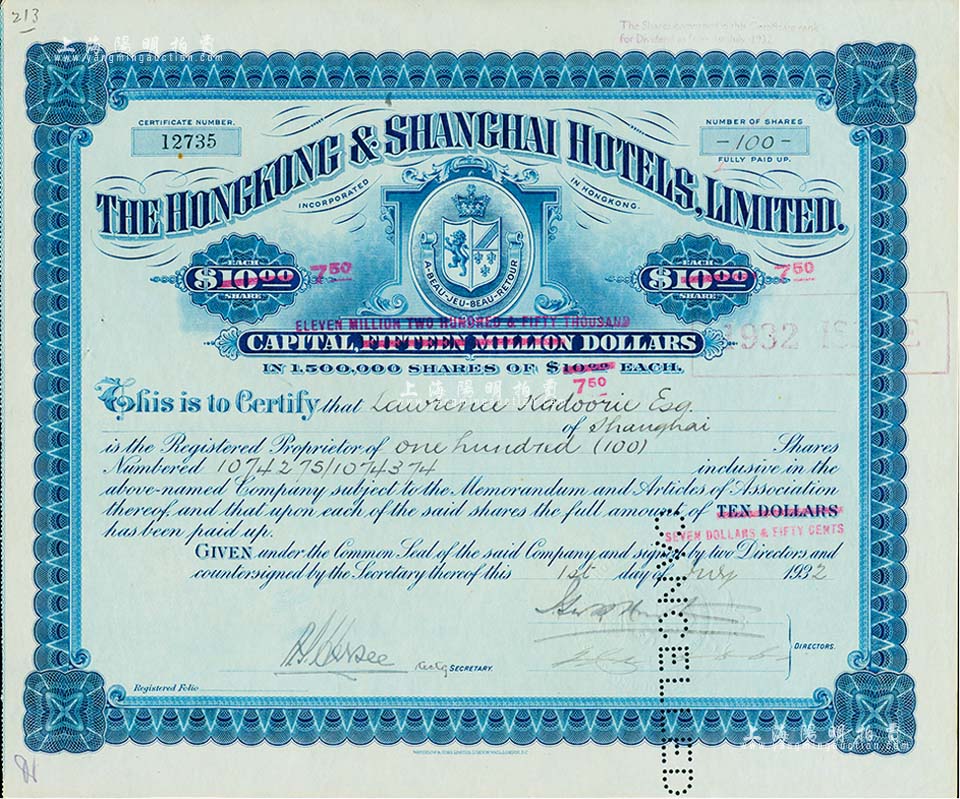 213
上海陽明拍賣
www.yangmingauction.com
for Dividend July 1932
CERTIFICATE NUMBER.
12735
NUMBER OF SHARES
-100-
FULLY PAID UP.
THE HONGKONG & SHANGHAI HOTELS, LIMITED.
INCORPORATED IN HONGKONG.
EACH
$10.00 7.50
SHARE
EACH
$10.00 7.50
SHARE
A-BEAU-JEU-BEAU-RETOUR
ELEVEN MILLION TWO HUNDRED & FIFTY THOUSAND
CAPITAL, FIFTEEN MILLION DOLLARS
1932 ISSUE
IN 1,500,000 SHARES OF $10.00 EACH,
7.50
上海陽明拍賣
www.yangmingauction.com
This is to Certify that Lawrence Kadoorie Esq.
of Shanghai
is the Registered Proprietor of one hundred (100) Shares
Numbered 1074275/1074374 inclusive in the
above-named Company subject to the Memorandum and Articles of Association
thereof, and that upon each of the said shares the full amount of TEN DOLLARS
SEVEN DOLLARS & FIFTY CENTS
has been paid up.
GIVEN under the Common Seal of the said Company and signed by two Directors and
countersigned by the Secretary thereof this 1st day of July 1932
CANCELLED
DIRECTORS.
Actg SECRETARY.
Registered Folio
上海陽明拍賣
www.yangmingauction.com